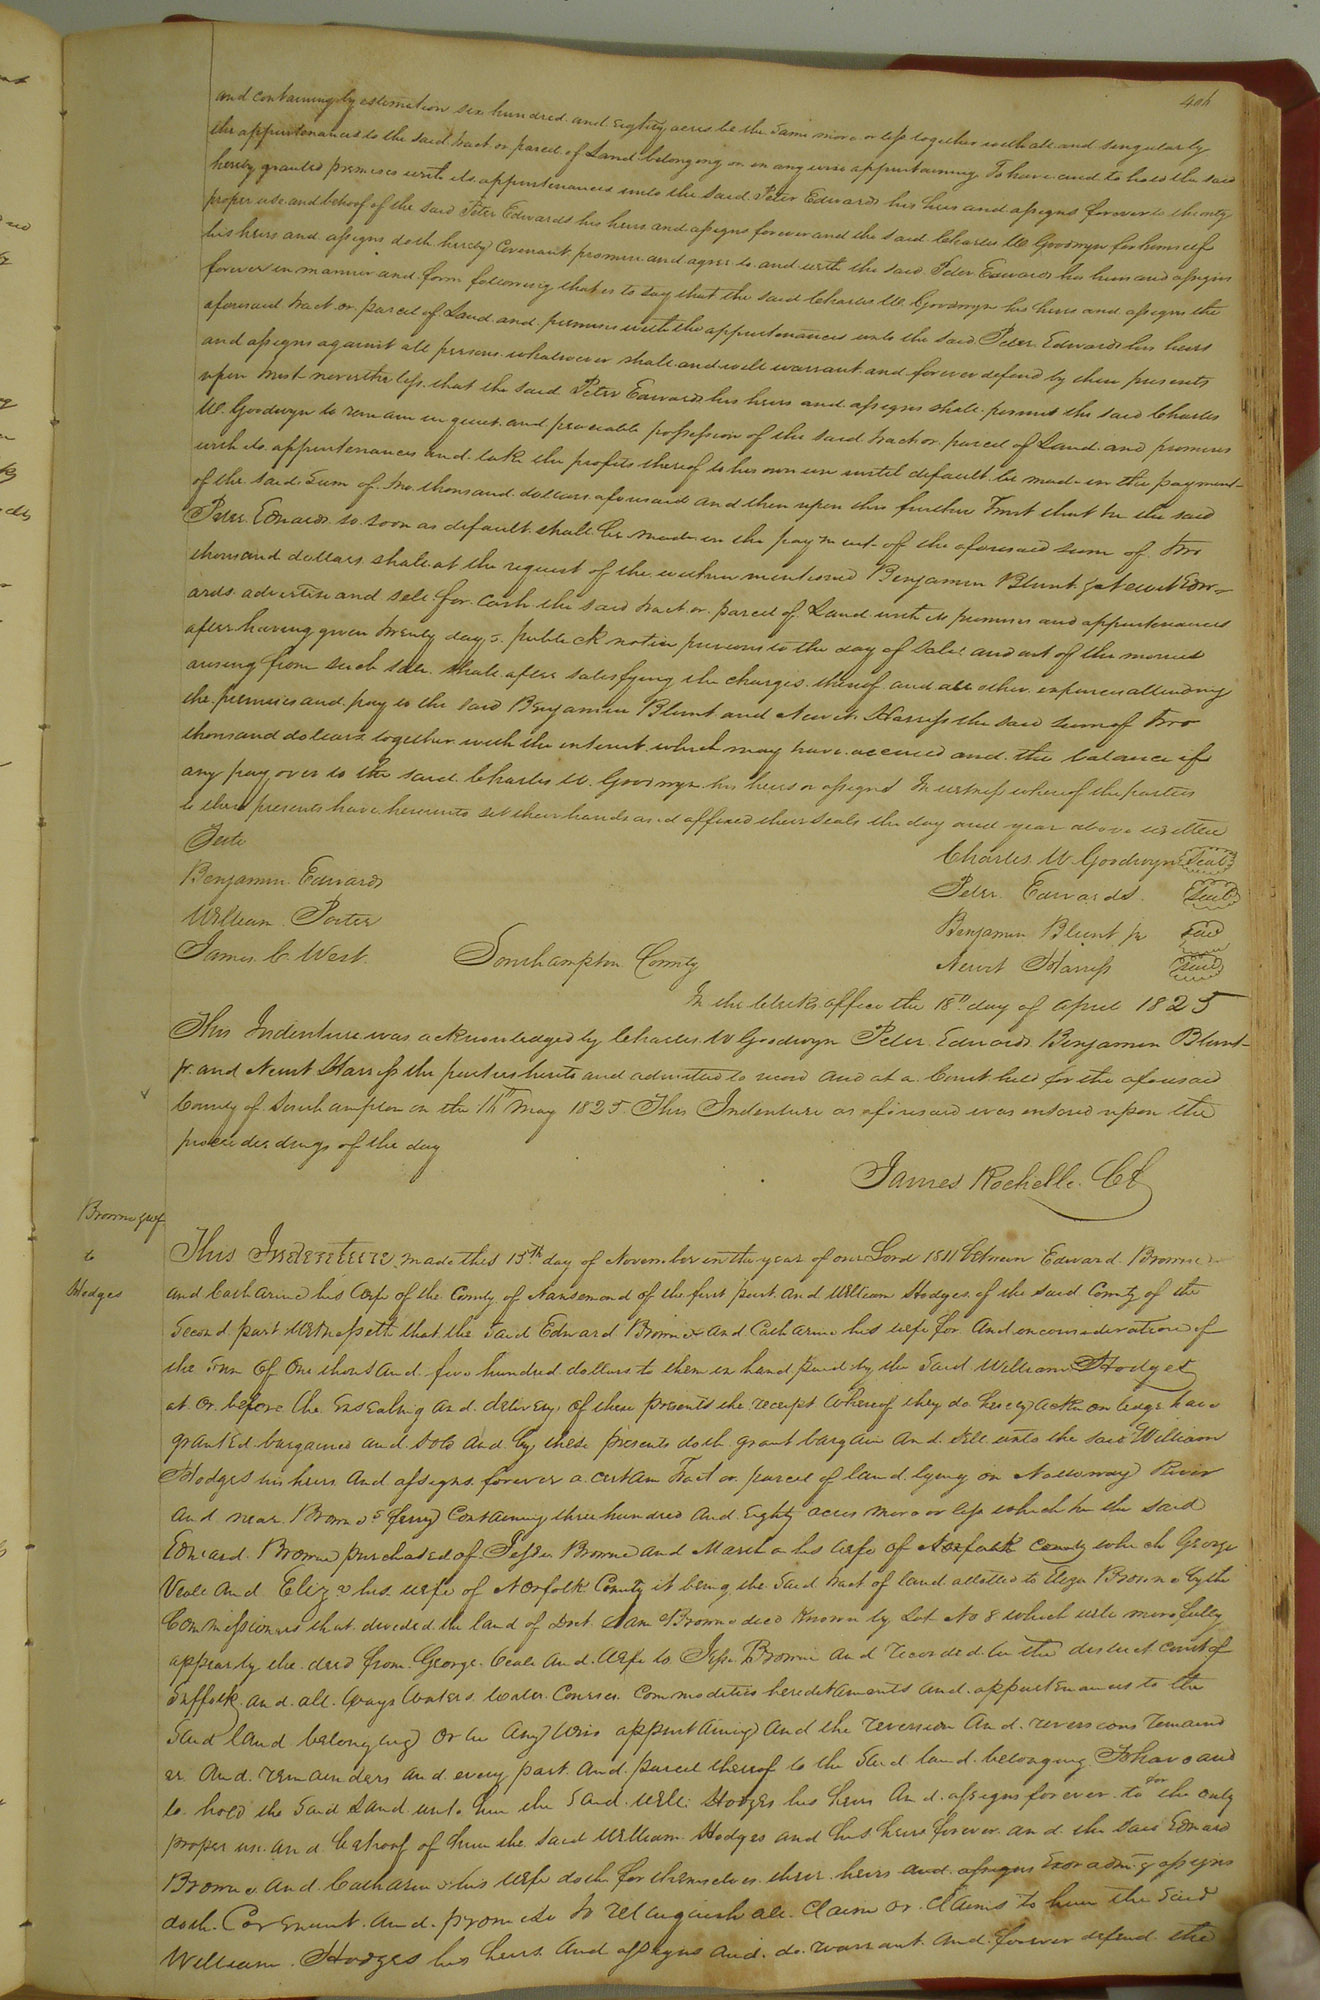 406
and containing by estimation six hundred and Eighty acres be the same more or less together with all and singularly
the appurtenances to the said tract or parcel of Land belonging or in any wise appurtaining To have and to hold the said
hereby granted premises with its appurtenances unto the said Peter Edwards his heirs and assigns forever to the only
proper use and behoof of the said Peter Edwards his heirs and assigns forever and the said Charles W. Goodwyn for himself
his heirs and assigns doth hereby Covenant promise and agree to and with the said Peter Edwards his heirs and assigns
forever in manner and form following that is to say that the said Charles W. Goodwyn his heirs and assigns the
aforesaid tract or parcel of Land and premises with the appurtenances unto the said Peter Edwards his heirs
and assigns against all persons whatsoever shall and will warrant and forever defend by these presents
upon trust nevertheless that the said Peter Edwards his heirs and assigns shall permit the said Charles
W. Goodwyn to remain in quiet and peaceable possession of the said tract or parcel of Land and premises
with its appurtenances and take the profits thereof to his own use until default be made in the payment
of the said Sum of two thousand dollars aforesaid and then upon this further Trust that he the said
Peter Edwards so soon as default shall be made in the payment of the aforesaid sum of two
thousand dollars shall at the request of the within mentioned Benjamin Blunt & Newit Edw-
ards advertise and sell for cash the said tract or parcel of Land with its premises and appurtenances
after having given twenty days publick notice previous to the day of sale and out of the monies
arising from such sale shall after satisfying the charges thereof and all other expences attending
the premises and pay to the said Benjamin Blunt and Newit Harriss the said sum of two
thousand dollars together with the interest which may have accrued and the balance if
any pay over to the said Charles W. Goodwyn his heirs or assigns In witness whereof the parties
to these presents have hereunto set their hands and affixed their seals the day and year above written
Teste
Charles W Goodwyn Seal
Benjamin Edwards
Peter Edwards Seal
William Porter
Benjamin Blunt jr Seal
James C West
Newit Harriss Seal
Southampton County
In the Clerks office the 18th day of April 1825
This Indenture was acknowledged by Charles W Goodwyn Peter Edwards Benjamin Blunt
jr. and Newit Harriss the parties hereto and admitted to record and at a Court held for the aforesaid
County of Southampton on the May 1825 This Indenture as aforesaid was entered upon the
proceedings of the day
James Rochelle CC
Browne & wf
to
Hodges
This Indenture made this 15th day of November in the year of our Lord 1811 between Edward Browne
and Catharine his wife of the County of Nansemond of the first part and William Hodges of the said County of the
Second part Witnesseth that the said Edward Browne and Catharine his wife for and in consideration of
the sum of One thousand five hundred dollars to them in hand paid by the said William Hodges
at or before the ensealing and delivery of these presents the receipt whereof they do hereby acknowledge have
granted bargained and sold and by these presents doth grant bargain and sell unto the said William
Hodges his heirs and assigns forever a certain Tract or parcel of land lying on Nottoway River
and near Browns ferry Containing three hundred and Eighty acres more or less which he the said
Edward Browne purchased of Jesse Browne and Martha his wife of Norfolk County which George
Veale and Eliza his wife of Norfolk County it being the said tract of land allotted to Eliza Browne by the
Commissioners that divided the land of Doct Sam Browne decd Known by Lot No 8 which will more fully
appear by the deed from George Veale and wife to Jesse Browne and recorded in the district court of
Suffolk and all ways waters water Courses Commodities hereditaments and appurtenances to the
said land belonging or in any wise appurtaining and the reversion and reversions remaind
er and remainders and every part and parcel thereof to the said land belonging To have and
to hold the said Land unto him the said Will Hodges his heirs and assigns forever to for the only
proper use and behoof of him the said William Hodges and his heirs forever and the said Edward
Browne and Catharine his wife doth for themselves their heirs and assigns Exor admr & assigns
doth Covenant and promise to relinquish all Claim or Claims to him the said
William Hodges his heirs and assigns and do warrant and forever defend the